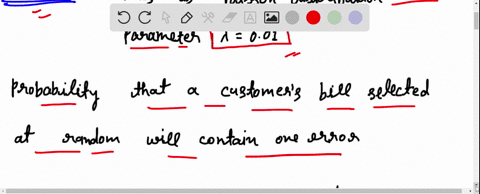 parameter λ = 0.01
probability that a customer's bill selected
at random will contain one error